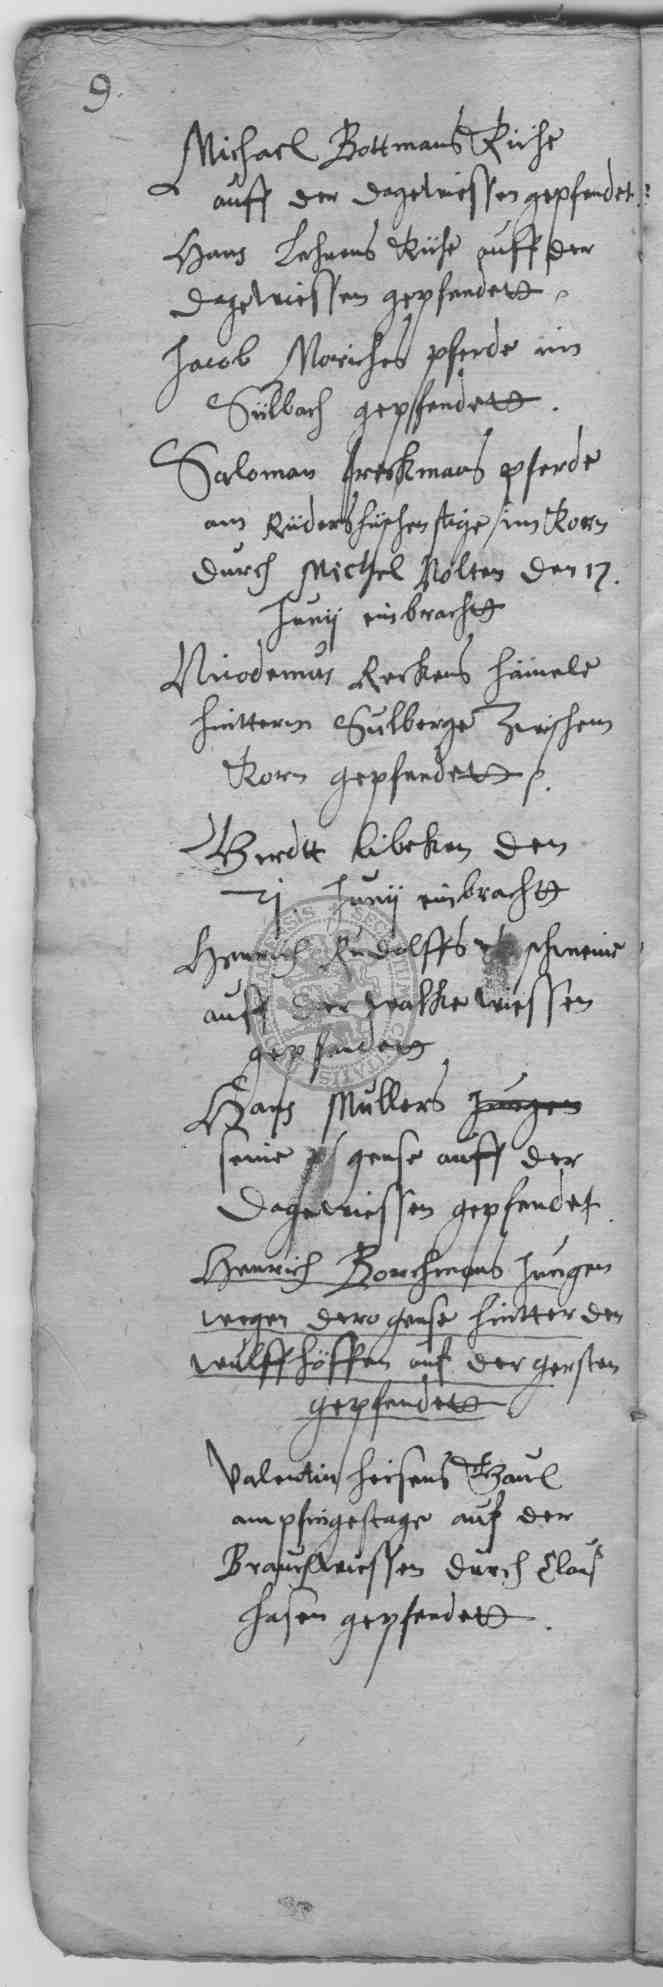 9.
Michael Bottmans Kühe
auff der dagewiessen gepfendet.
Hans Lehnens Kühe auff der
dagewiessen gepfendett
Jacob Moriches pferde im
Sülbach gepffendett.
Saloman freskmans pferde
am Rüdershüschenstige im Korn
durch Michel Nolten den 17.
Junij einbrachtt
Nicodemus Reckens hämele
hintterm Sulberge Zwischem
Korn gepfendett.
Gerdtt libeken den
Junij einbrachtt
Henrich Rudolffs schweine
auff der walkewiessen
gepfendett
Hans Mullers Jungen
seine gense auff der
Dagewiessen gepfendet
Henrich Borchmans Jungen
wegen dero gense hintter den
wulffhöffen auf der gersten
gepfendett
Valentin heisens Gaul
am pfingestage auf der
Brauchwiessen durch Claus
hasen gepfendett.